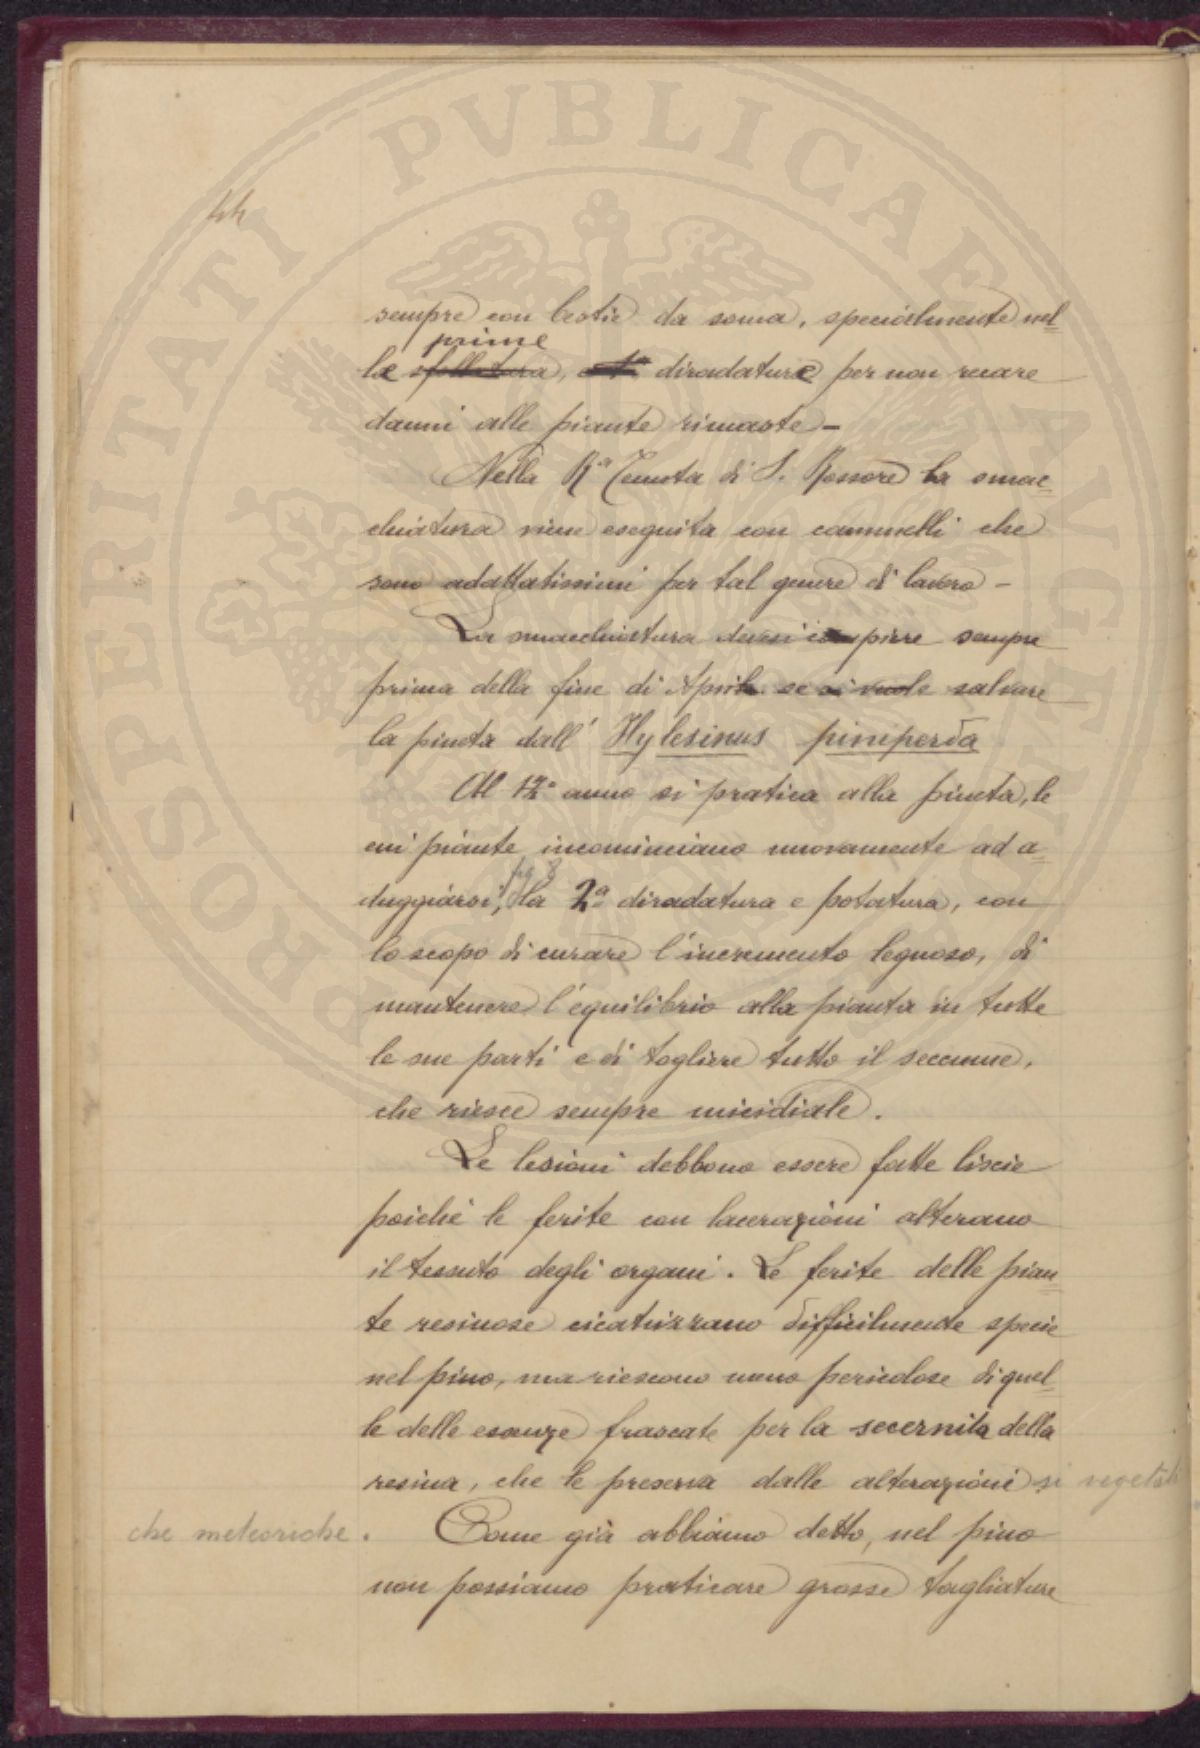 44
sempre con bestie da soma, specialmente nel=
prime
le sfollatura, diradature per non recare
danni alle piante rimaste –
Nella R.a Tenuta di S. Rossore la smac=
chiatura viene eseguita con cammelli che
sono adattatissimi per tal genere di lavoro –
La smacchiatura devesi compiere sempre
prima della fine di Aprile se si vuole salvare
la pineta dall' Hylesinus piniperda
Al 12° anno si pratica alla pineta, le
cui piante incominciano nuovamente ad a=
duggiarsi, la 2a diradatura e potatura, con
fig 8
lo scopo di curare l'incremento legnoso, di
mantenere l'equilibrio alla pianta in tutte
le sue parti e di togliere tutto il seccume,
che riesce sempre micidiale.
Le lesioni debbono essere fatte liscie
poichè le ferite con lacerazioni alterano
il tessuto degli organi. Le ferite delle pian=
te resinose cicatrizzano difficilmente specie
nel pino, ma riescono meno pericolose di quel=
le delle essenze frascate per la secernita della
resina, che le preserva dalle alterazioni si vegetali
che meteoriche. Come già abbiamo detto, nel pino
non possiamo praticare grosse tagliature
PROSPERITATI PVBLICAE AVGENDAE